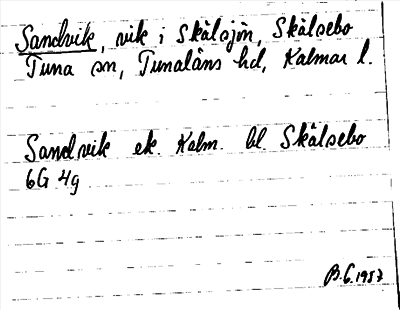 Sandvik, vik i Skälsjön, Skälsebo
Tuna sn, Tunaläns hd, Kalmar l.
Sandvik ek. Kalm. bl Skälsebo
6G 4g
B.G. 1957